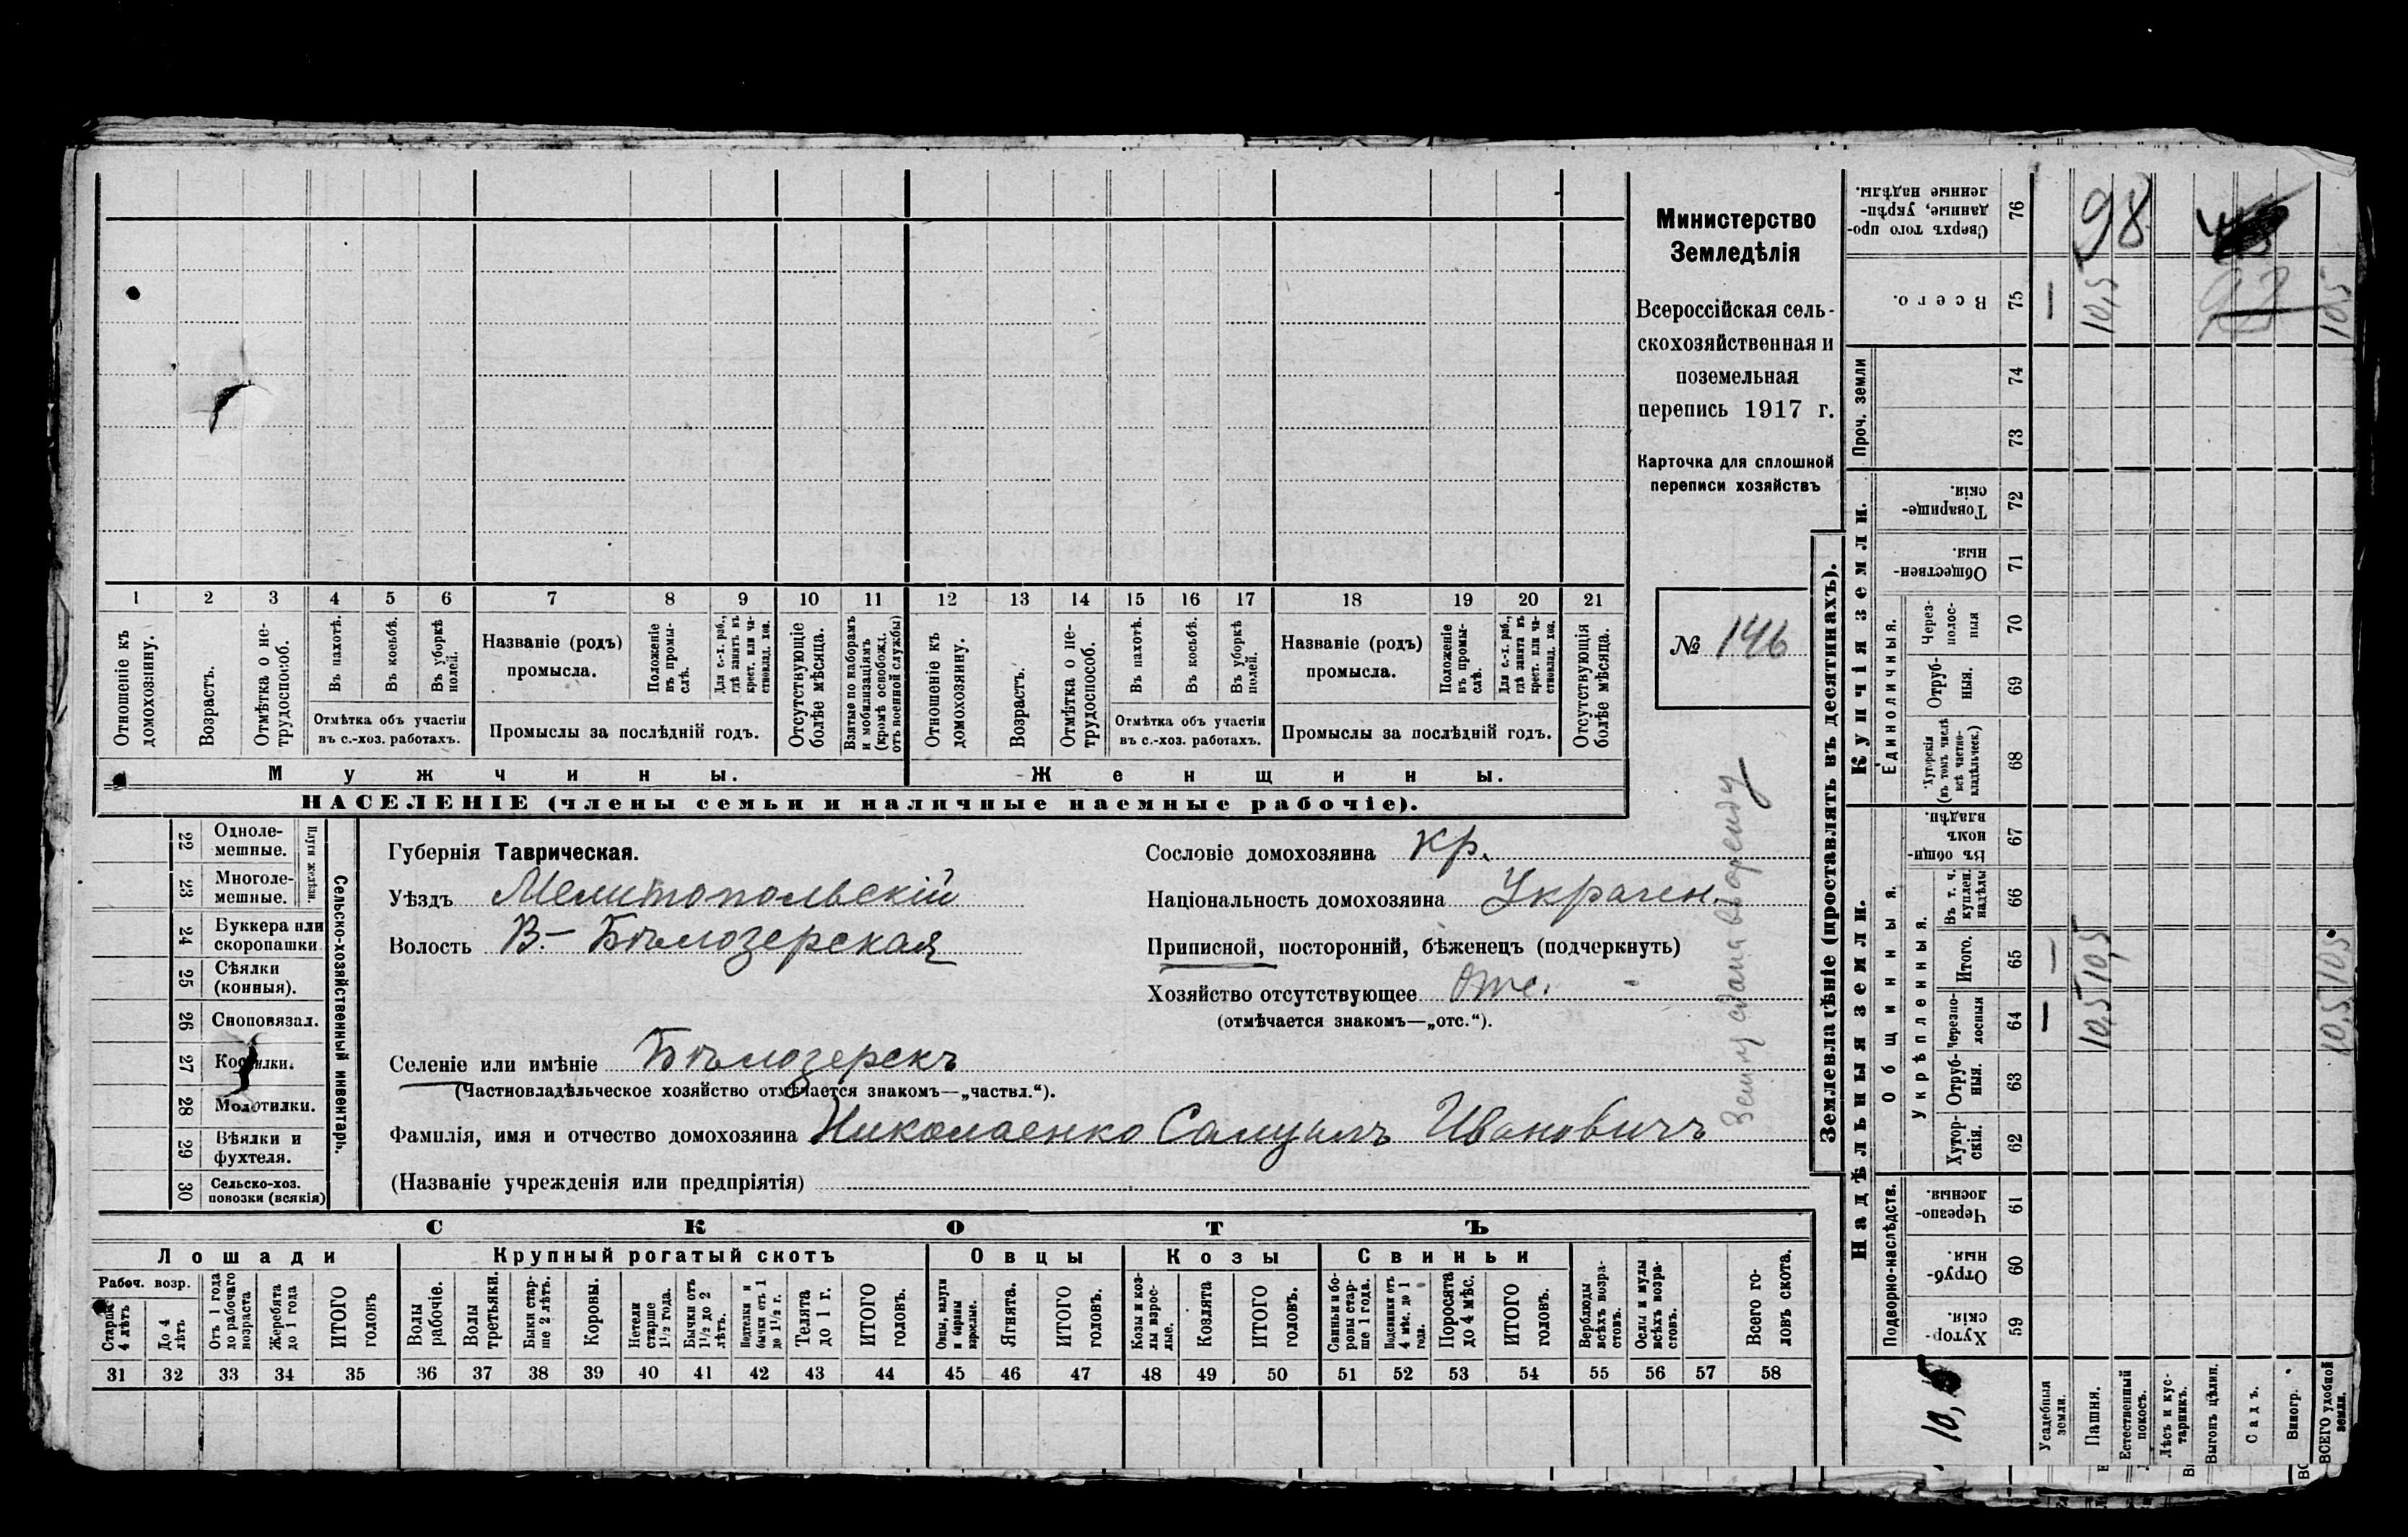 Министерство
Земледѣлія
Всероссійская сель-
скохозяйственная и
поземельная
перепись 1917 г.
Карточка для сплошной
переписи хозяйствъ
№ 146
1 2 3 4 5 6 7 8 9 10 11 12 13 14 15 16 17 18 19 20 21
Отношеніе къ домохозяину.
Возрастъ.
Отмѣтка о не-трудоспособ.
Въ пахотѣ.
Въ косьбѣ.
Въ уборкѣ полей.
Отмѣтка объ участіи
въ с.-хоз. работахъ.
Названіе (родъ)
промысла.
Положеніе въ промы-слѣ.
Для с.-х. раб., гдѣ занятъ въ крест. или ча-стновлад. хоз.
Промыслы за послѣдній годъ.
Отсутствующіе болѣе мѣсяца.
Взятые по наборамъ и мобилизаціямъ (кромѣ освобожд. отъ военной службы)
Отношеніе къ домохозяину.
Возрастъ.
Отмѣтка о не-трудоспособ.
Въ пахотѣ.
Въ косьбѣ.
Въ уборкѣ полей.
Отмѣтка объ участіи
въ с.-хоз. работахъ.
Названіе (родъ)
промысла.
Положеніе въ промы-слѣ.
Для с.-х. раб., гдѣ занята въ крест. или ча-стновлад. хоз.
Промыслы за послѣдній годъ.
Отсутствующія болѣе мѣсяца.
Мужчины.
Женщины.
НАСЕЛЕНІЕ (члены семьи и наличные наемные рабочіе).
22 Одноле-мешные.
23 Многоле-мешные.
Плуги желѣзн.
24 Буккера или скоропашки
25 Сѣялки (конныя).
26 Сноповязал.
27 Косилки.
28 Молотилки.
29 Вѣялки и фухтеля.
30 Сельско-хоз. повозки (всякія)
Сельско-хозяйственный инвентарь.
Губернія Таврическая.
Уѣздъ Мелитопольскій
Волость В.- Бѣлозерская
Сословіе домохозяина кр.
Національность домохозяина Украин.
Приписной, посторонній, бѣженецъ (подчеркнуть)
Хозяйство отсутствующее отс.
(отмѣчается знакомъ—„отс.“).
Селеніе или имѣніе Бѣлозерскъ
(Частновладѣльческое хозяйство отмѣчается знакомъ—„частвл.“).
Фамилія, имя и отчество домохозяина Николаенко Самуилъ Ивановичъ
(Названіе учрежденія или предпріятія)
Землю сдала въ аренду
СКОТЪ
Лошади
Крупный рогатый скотъ
Овцы
Козы
Свиньи
Рабоч. возр.
Старше 4 лѣтъ
До 4 лѣтъ
Отъ 1 года до рабочаго возраста
Жеребята до 1 года
ИТОГО головъ
Волы рабочіе.
Волы третьяки.
Быки стар-ше 2 лѣтъ.
Коровы.
Нетели старше 1 1/2 года.
Бычки отъ 1 1/2 до 2 лѣтъ.
Подтелки и бычки отъ 1 до 1 1/2 г.
Телята до 1 г.
ИТОГО головъ.
Овцы, валухи и бараны взрослые.
Ягнята.
ИТОГО головъ.
Козы и коз-лы взрос-лые.
Козлята
ИТОГО головъ.
Свиньи и бо-ровы стар-ше 1 года.
Подсвинки отъ 4 мѣс. до 1 года.
Поросята до 4 мѣс.
ИТОГО головъ.
Верблюды всѣхъ возра-стовъ.
Ослы и мулы всѣхъ возра-стовъ.
Всего го-ловъ скота.
31 32 33 34 35 36 37 38 39 40 41 42 43 44 45 46 47 48 49 50 51 52 53 54 55 56 57 58
Землевладѣніе (проставлять въ десятинахъ).
Надѣльныя земли.
Купчія земли.
Проч. земли
Подворно-наслѣдств.
Общинныя.
Укрѣпленныя.
Единоличныя.
76 Сверхъ того про-данные, укрѣп-ленные надѣлы.
75 Всего.
74
73
72 Товарище-скія.
71 Обществен-ныя.
70 Через-полос-ныя
69 Отруб-ныя.
68 Хуторскія (въ томъ числѣ всѣ частно-владѣльческ.)
67 Въ общи-номъ владѣн.
66 Въ т. ч. куплен. надѣлы
65 Итого.
64 Черезпо-лосныя
63 Отруб-ныя.
62 Хутор-скія.
61 Черезпо-лосныя.
60 Отруб-ныя.
59 Хутор-скія.
98
10,5 10,5
10,5 10,5
10,5 10,5
10,5
Усадебныя земли.
Пашня.
Естественный покосъ.
Лѣсъ и кус-тарникъ.
Выгонъ цѣлин.
Садъ.
Виногр.
ВСЕГО удобной земли.